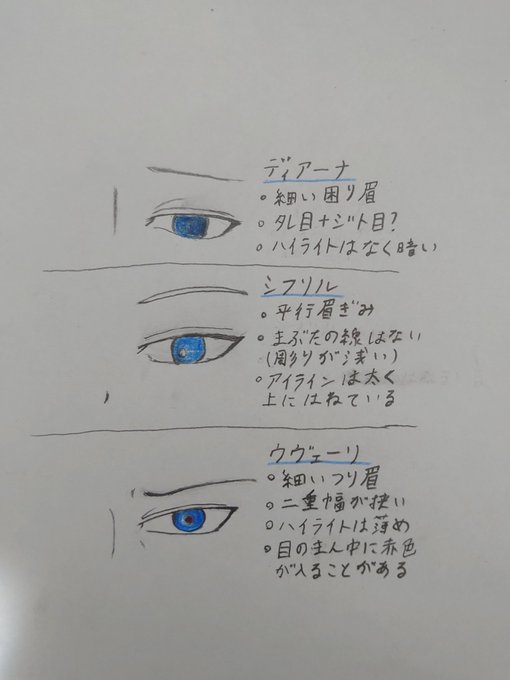 ディアーナ
○細い困り眉
○タレ目+ジト目?
○ハイライトはなく暗い
シフリル
○平行眉ぎみ
○まぶたの線はない
(彫りが浅い)
○アイラインは太く
上にはねている
ウヴェーリ
○細いつり眉
○二重幅が狭い
○ハイライトは薄め
○目のまん中に赤色
が入ることがある